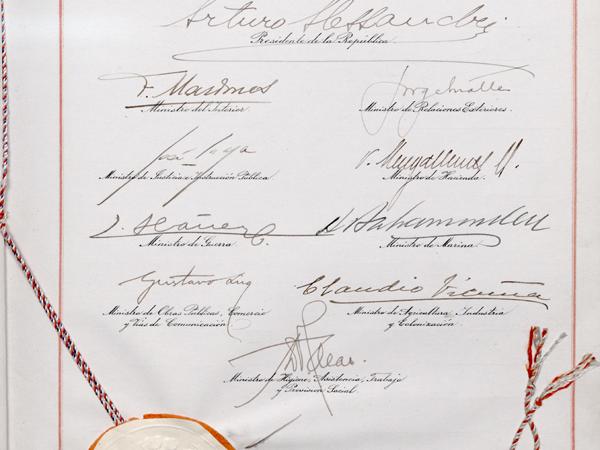 Arturo Alessandri
Presidente de la República.
F. Mardones
Ministro del Interior
Jorge Matte
Ministro de Relaciones Exteriores.
José Maza
Ministro de Justicia e Instrucción Pública
V. Magallanes M.
Ministro de Hacienda.
Ibáñez C.
Ministro de Guerra
Bahamonde
Ministro de Marina.
Gustavo Lira
Ministro de Obras Públicas, Comercio
y Vías de Comunicación.
Claudio Vicuña
Ministro de Agricultura, Industria
y Colonización.
Ministro de Higiene, Asistencia, Trabajo
y Previsión Social